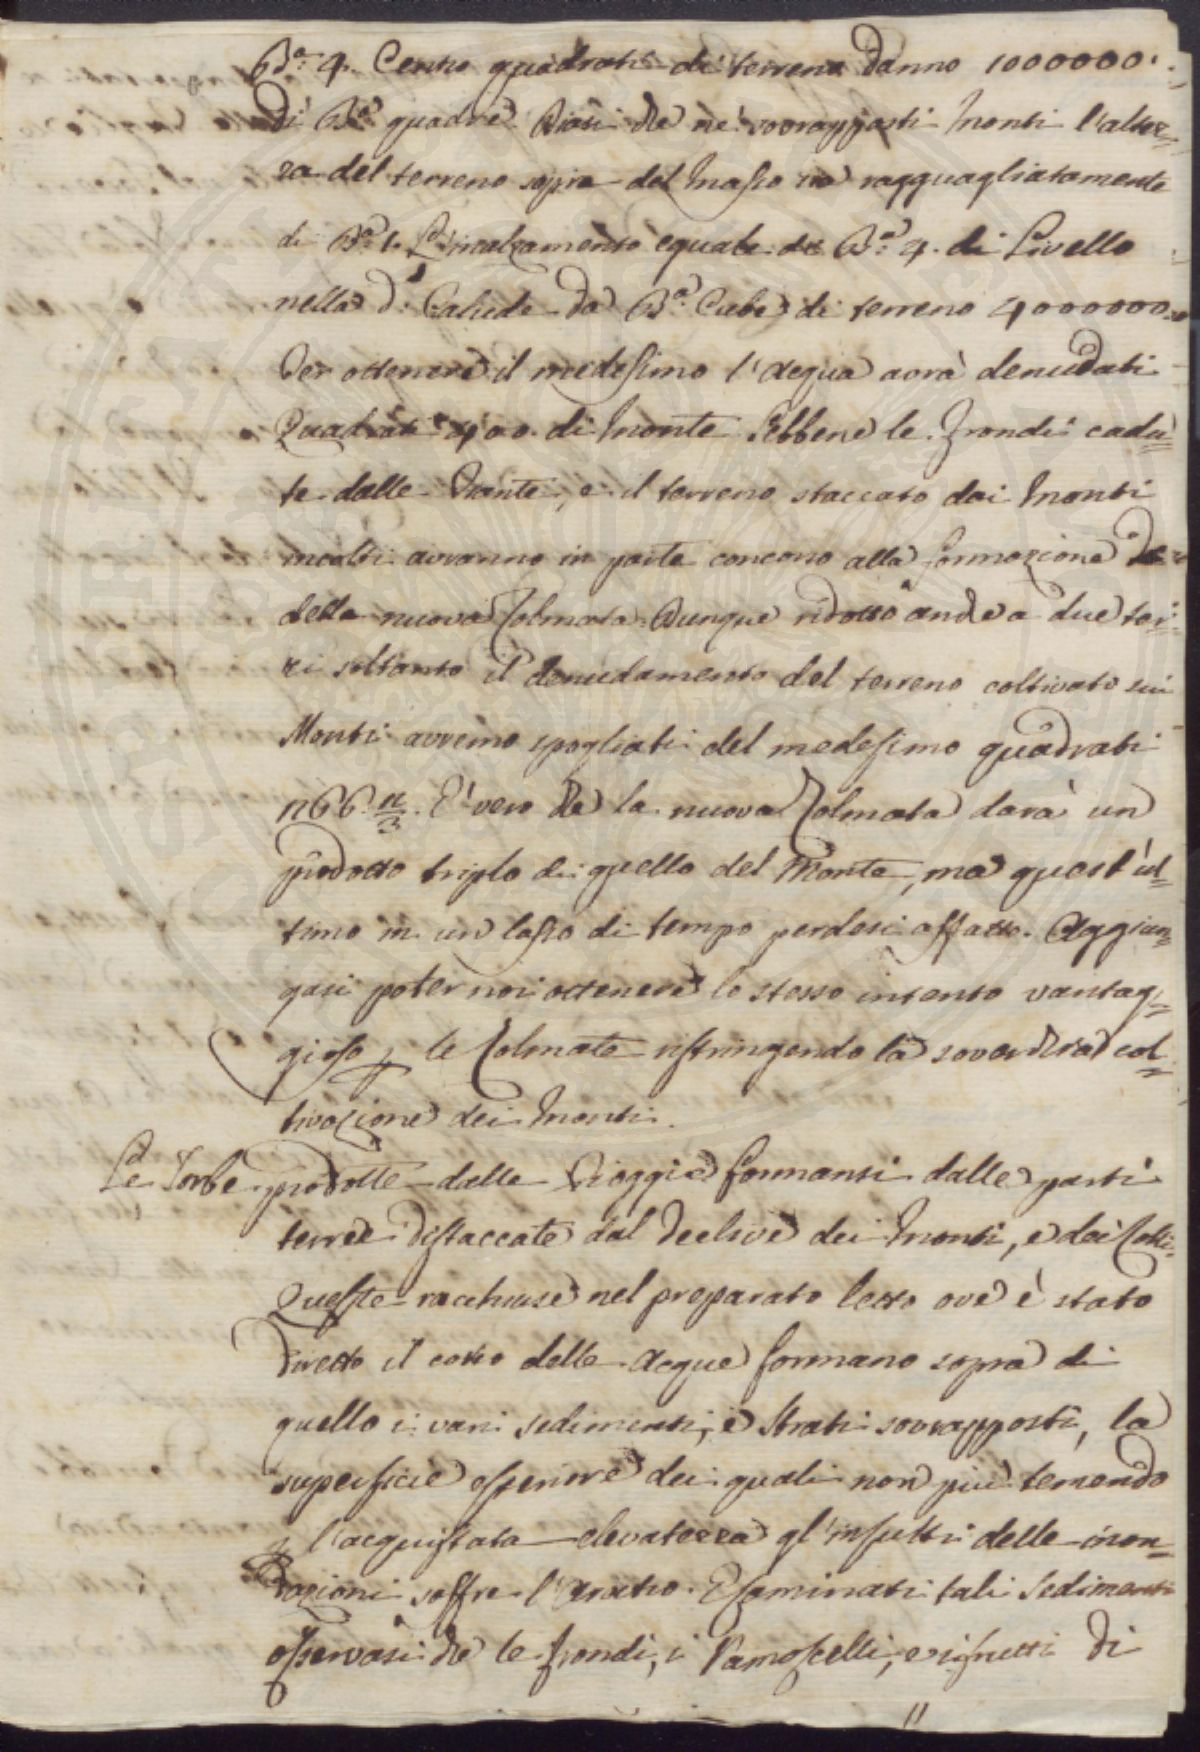 B.a 4. Cento quadrati di terreno danno 1000000.
di B.a quadre. Diasi che ne' sovrapposti Monti l'altez=
za del terreno sopra del Masso sia ragguagliatamente
di B.a 1. L'incalzamento eguale di B.a 4. di Livello
nella d.a Calude da B.a Cube di terreno 4000000.
Per ottenere il medesimo l'acqua avrà denudati
Quadrati 400. di Monte. Sebbene le frondi cadu=
te dalle Piante, e il terreno staccato dai Monti
incolti avranno in parte concorso alla formazione
della nuova Colmata. Dunque ridotto anche a due ter=
zi soltanto il denudamento del terreno coltivato sui
Monti avremo spogliati del medesimo quadrati
n266 2/3. E' vero che la nuova Colmata darà un
prodotto triplo di quello del Monte, ma quest'ul=
timo in un lasso di tempo perdesi affatto. Aggiun=
gasi poter noi ottenere lo stesso intento vantag=
gioso p le Colmate ristringendo la soverchia col=
tivazione dei Monti.
Le Torbe prodotte dalle Pioggie formansi dalle parti
terree distaccate dal declive dei Monti, e dei Colli.
Queste racchiuse nel preparato letto ove è stato
diretto il corso delle Acque formano sopra di
quello i vari sedimenti, e Strati sovrapposti, la
superficie esteriore dei quali non più temendo
p l'acquistata elevatezza gl'insulti delle inon=
dazioni soffre l'Aratro. Esaminati tali Sedimenti
osservasi che le frondi, i Ramoscelli, e i frutti di